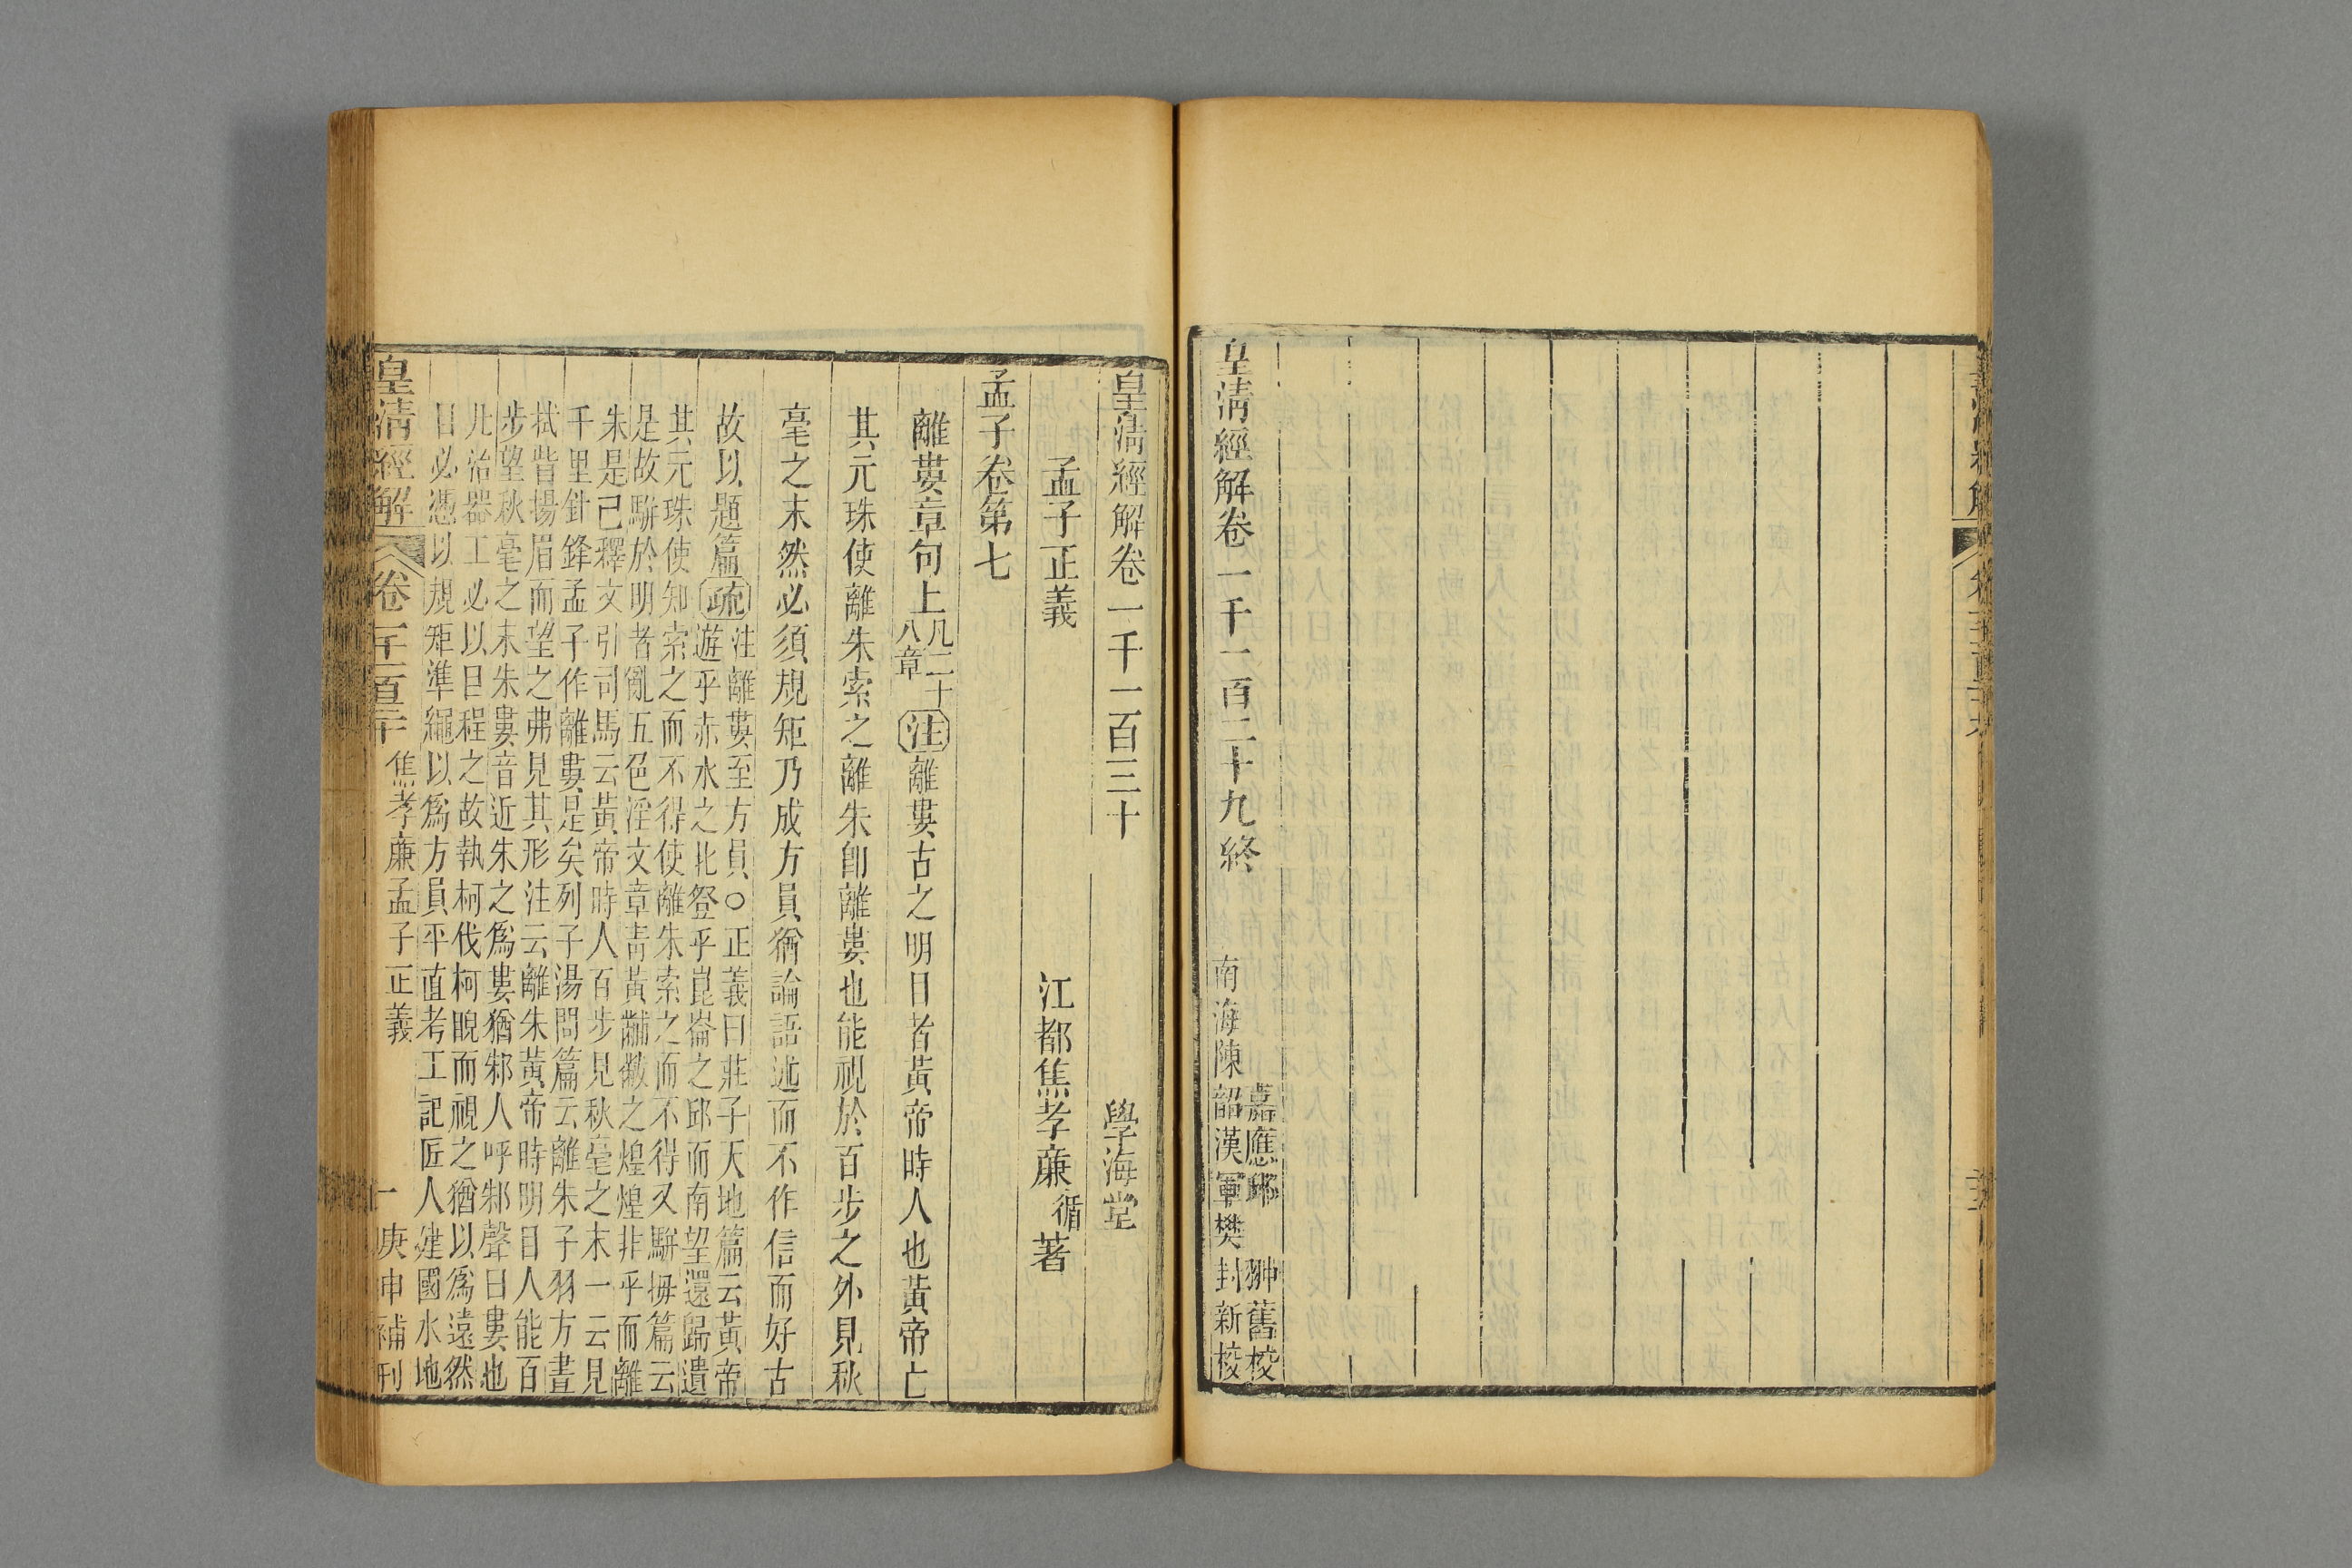 皇清經解卷一千一百二十九終
嘉應邱翀舊校
南海陳韶漢軍樊封新校
皇清經解卷一千一百三十
學海堂
孟子正義
江都焦孝廉循著
孟子卷第七
離婁章句上凡二十八章注離婁古之明目者黃帝時人也黃帝亡
其元珠使離朱索之離朱卽離婁也能視於百步之外見秋
毫之末然必須規矩乃成方員猶論語述而不作信而好古
故以題篇疏注離婁至方員○正義曰莊子天地篇云黃帝
遊乎赤水之北登乎崑崙之邱而南望還歸遺
其元珠使知索之而不得使離朱索之而不得又駢拇篇云
是故駢於明者亂五色淫文章青黃黼黻之煌煌非乎而離
朱是已釋文引司馬云黃帝時人百步見秋毫之末一云見
千里針鋒孟子作離婁是矣列子湯問篇云離朱子羽方晝
拭眥揚眉而望之弗見其形注云離朱黃帝時明目人能百
步望秋毫之末朱婁音近朱之爲婁猶邾人呼邾聲曰婁也
凡治器工必以目程之故執柯伐柯睨而視之猶以爲遠然
目必憑以規矩準繩以爲方員平直考工記匠人建國水地
皇清經解
卷一千一百三十
焦孝廉孟子正義
一
庚申補刊